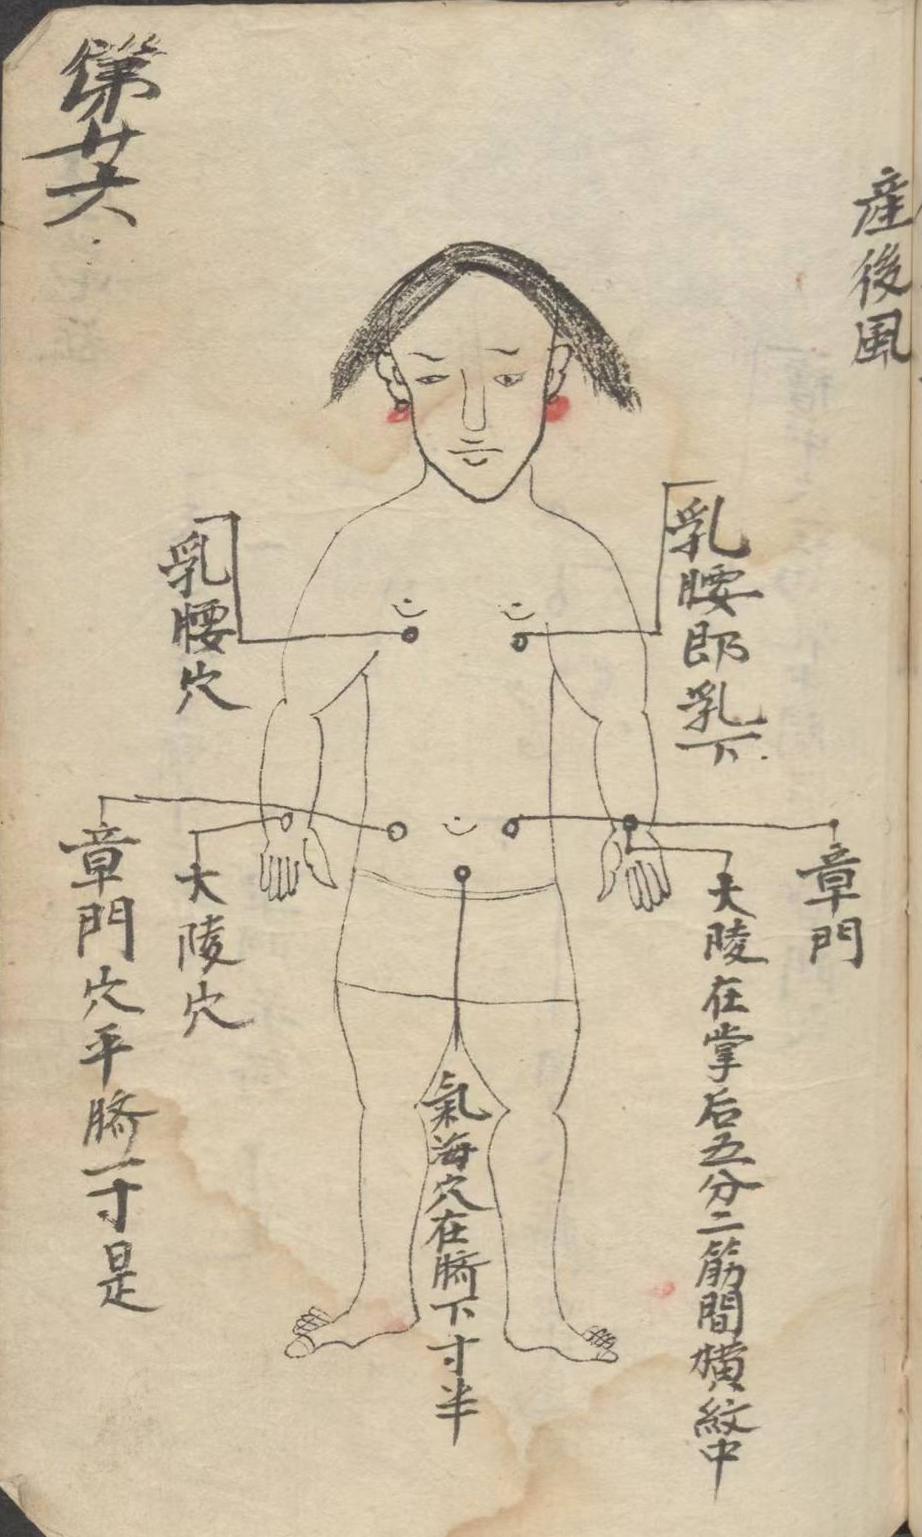 産後風
章門
乳腰即乳下
大陵在掌后五分二筋間横紋中
氣海穴在臍下寸半
乳腰穴
大陵穴
章門穴平臍一寸是
第廿六